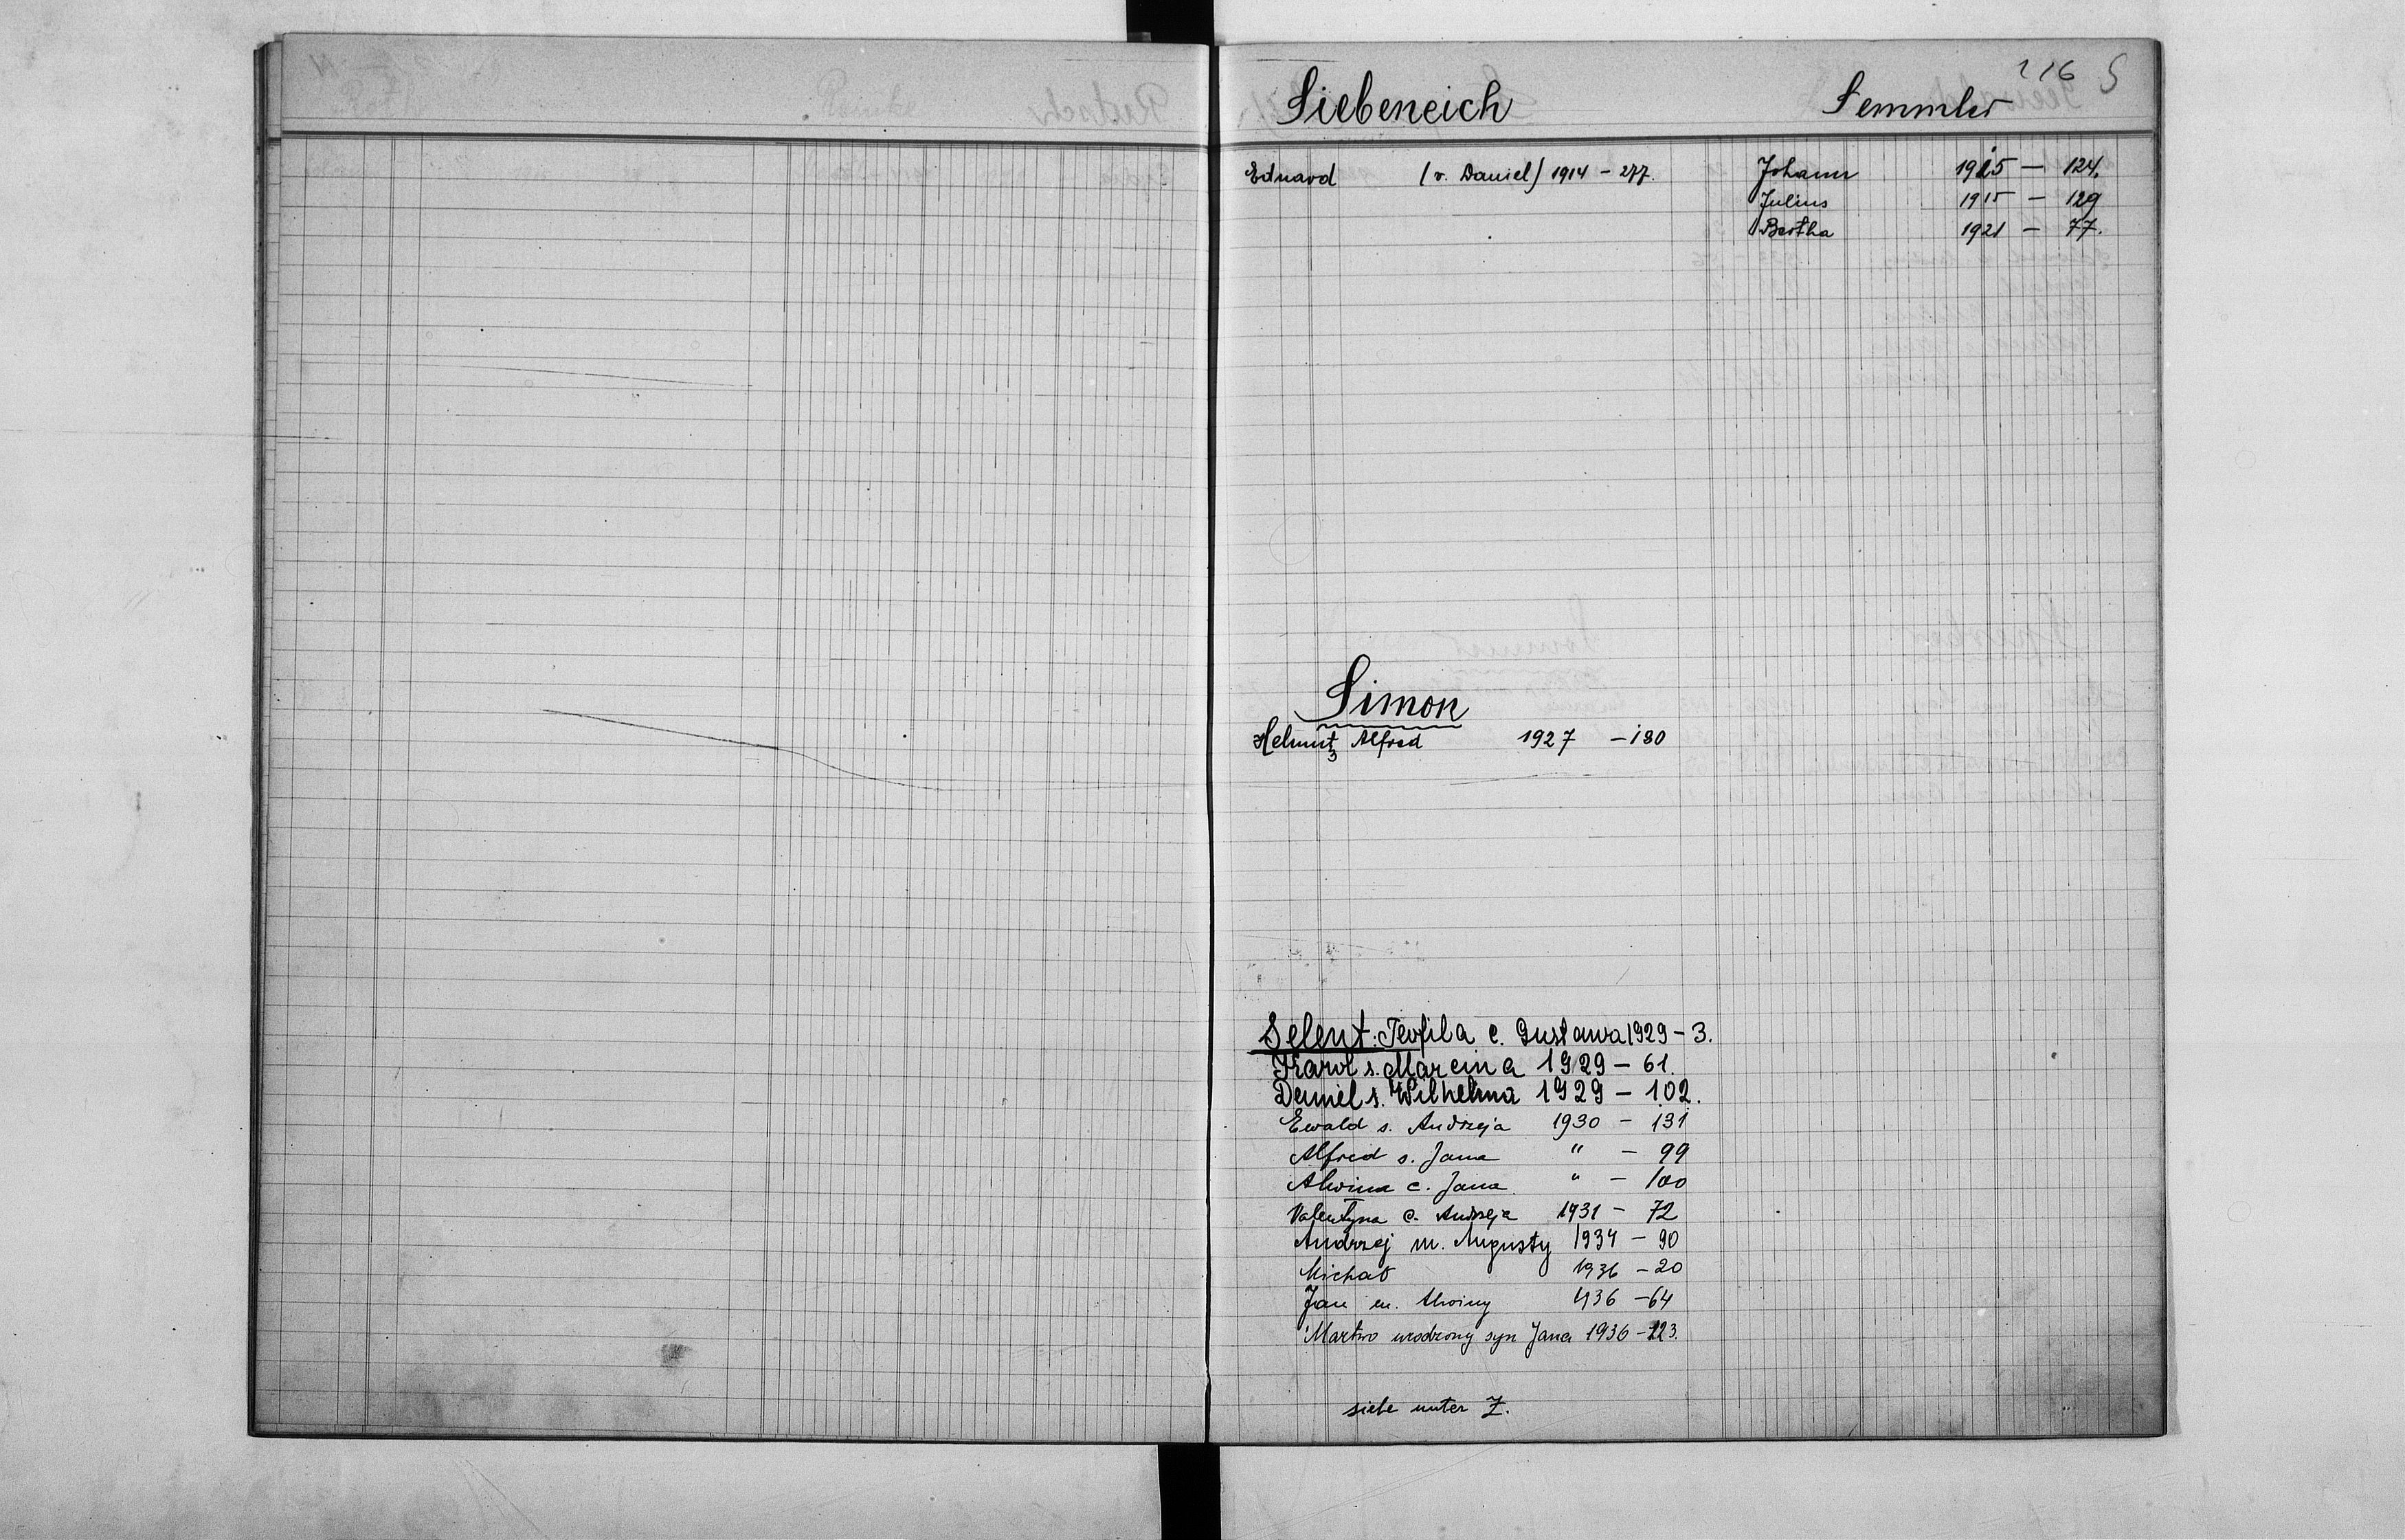 216 S
Siebeneich
Eduard (v. Daniel) 1914 - 277.
Simon
Helmut Alfred 1927 - 180
Selent: Teofila c. Gustawa 1929 - 3.
Karol s. Marcina 1929 - 61.
Daniel s. Wilhelma 1929 - 102.
Ewald s. Andrzeja 1930 - 131
Alfred s. Jana " - 99
Alwina c. Jana " - 100
Valentyna c. Andrzeja 1931 - 72
Andrzej m. Augusty 1934 - 90
Michał 1936 - 20
Jan m. Alwiny 1936 - 64
Martwo urodzony syn Jana 1936 - 123.
siehe unter Z.
Semmler
Johann 1915 - 124.
Julius 1915 - 129
Bertha 1921 - 77.